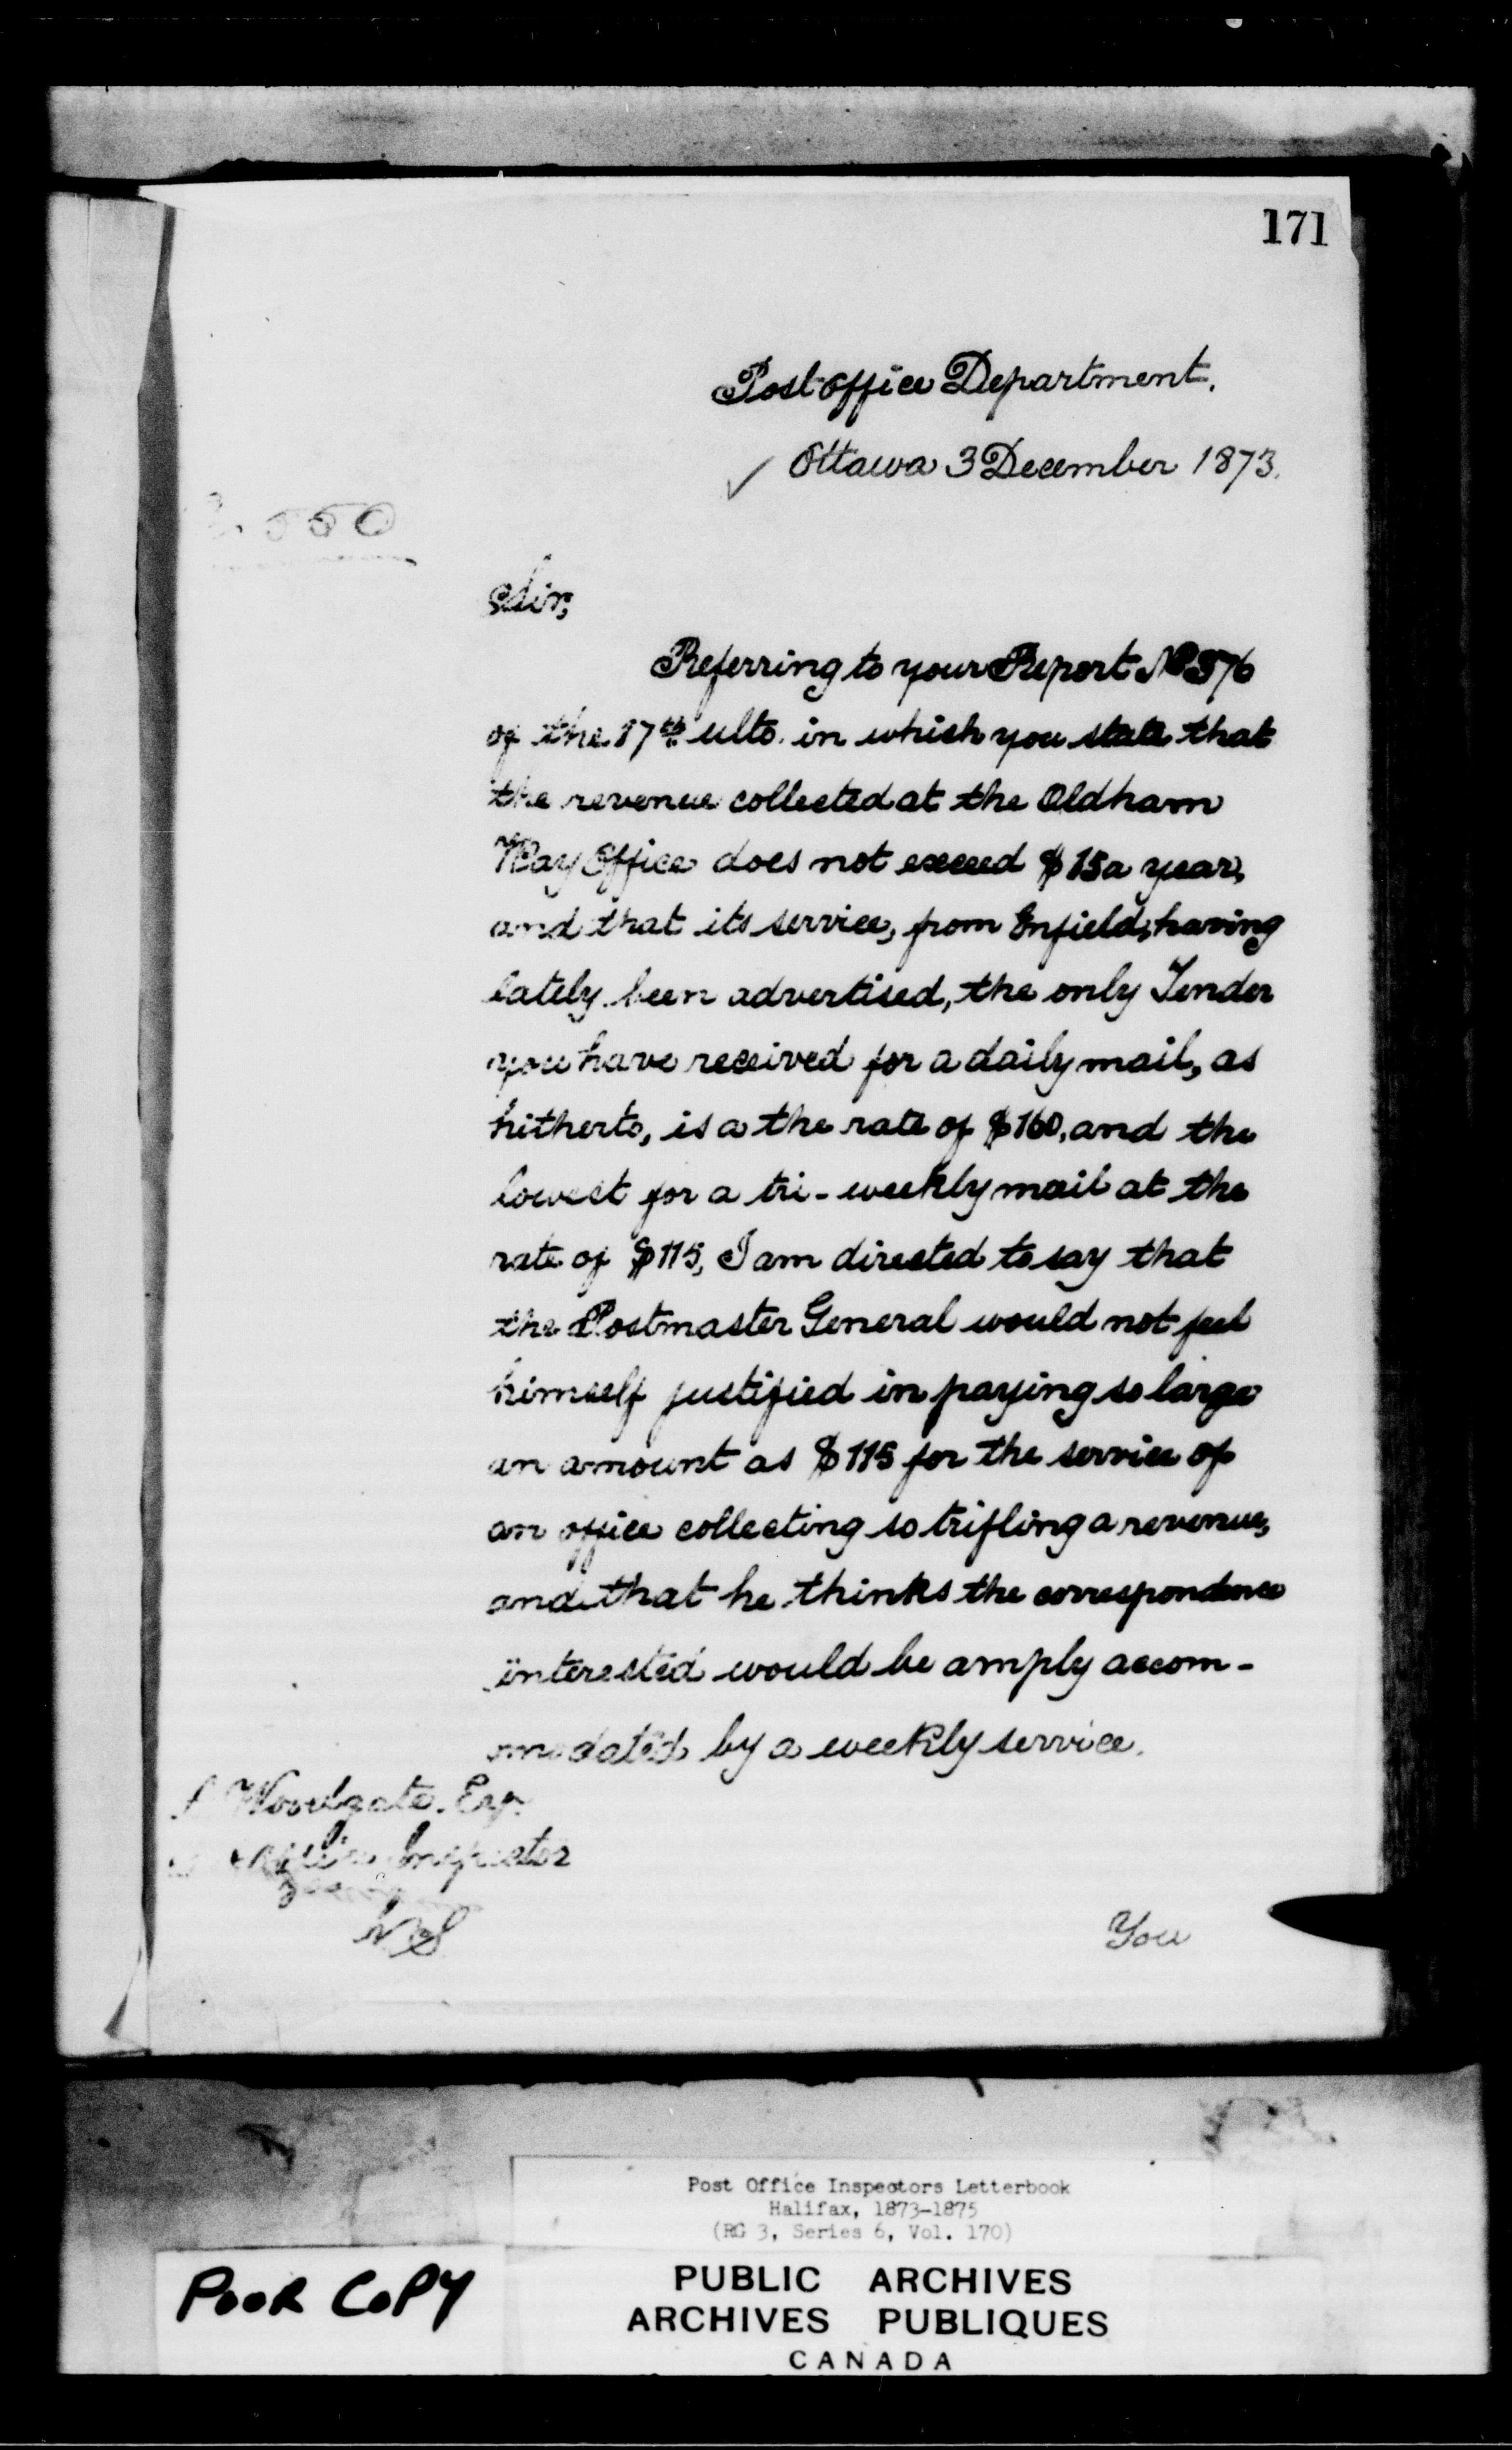 171
Post Office Department.
✓ Ottawa 3 December 1873.
550
Sir,
Referring to your Report No 576
of the 17th ulto. in which you state that
the revenue collected at the Oldham
Way Office does not exceed $15 a year,
and that its service, from Enfield, having
lately been advertised, the only Tender
you have received for a daily mail, as
hitherto, is a the rate of $160, and the
lowest for a tri-weekly mail at the
rate of $115, I am directed to say that
the Postmaster General would not feel
himself justified in paying so large
an amount as $115 for the service of
an office collecting so trifling a revenue,
and that he thinks the correspondence
interested would be amply accom-
modated by a weekly service.
Woodgate. Esq.
Office Inspector
NS
You
Post Office Inspectors Letterbook
Halifax, 1873-1875
(RG 3, Series 6, Vol. 170)
POOR COPY
PUBLIC ARCHIVES
ARCHIVES PUBLIQUES
CANADA